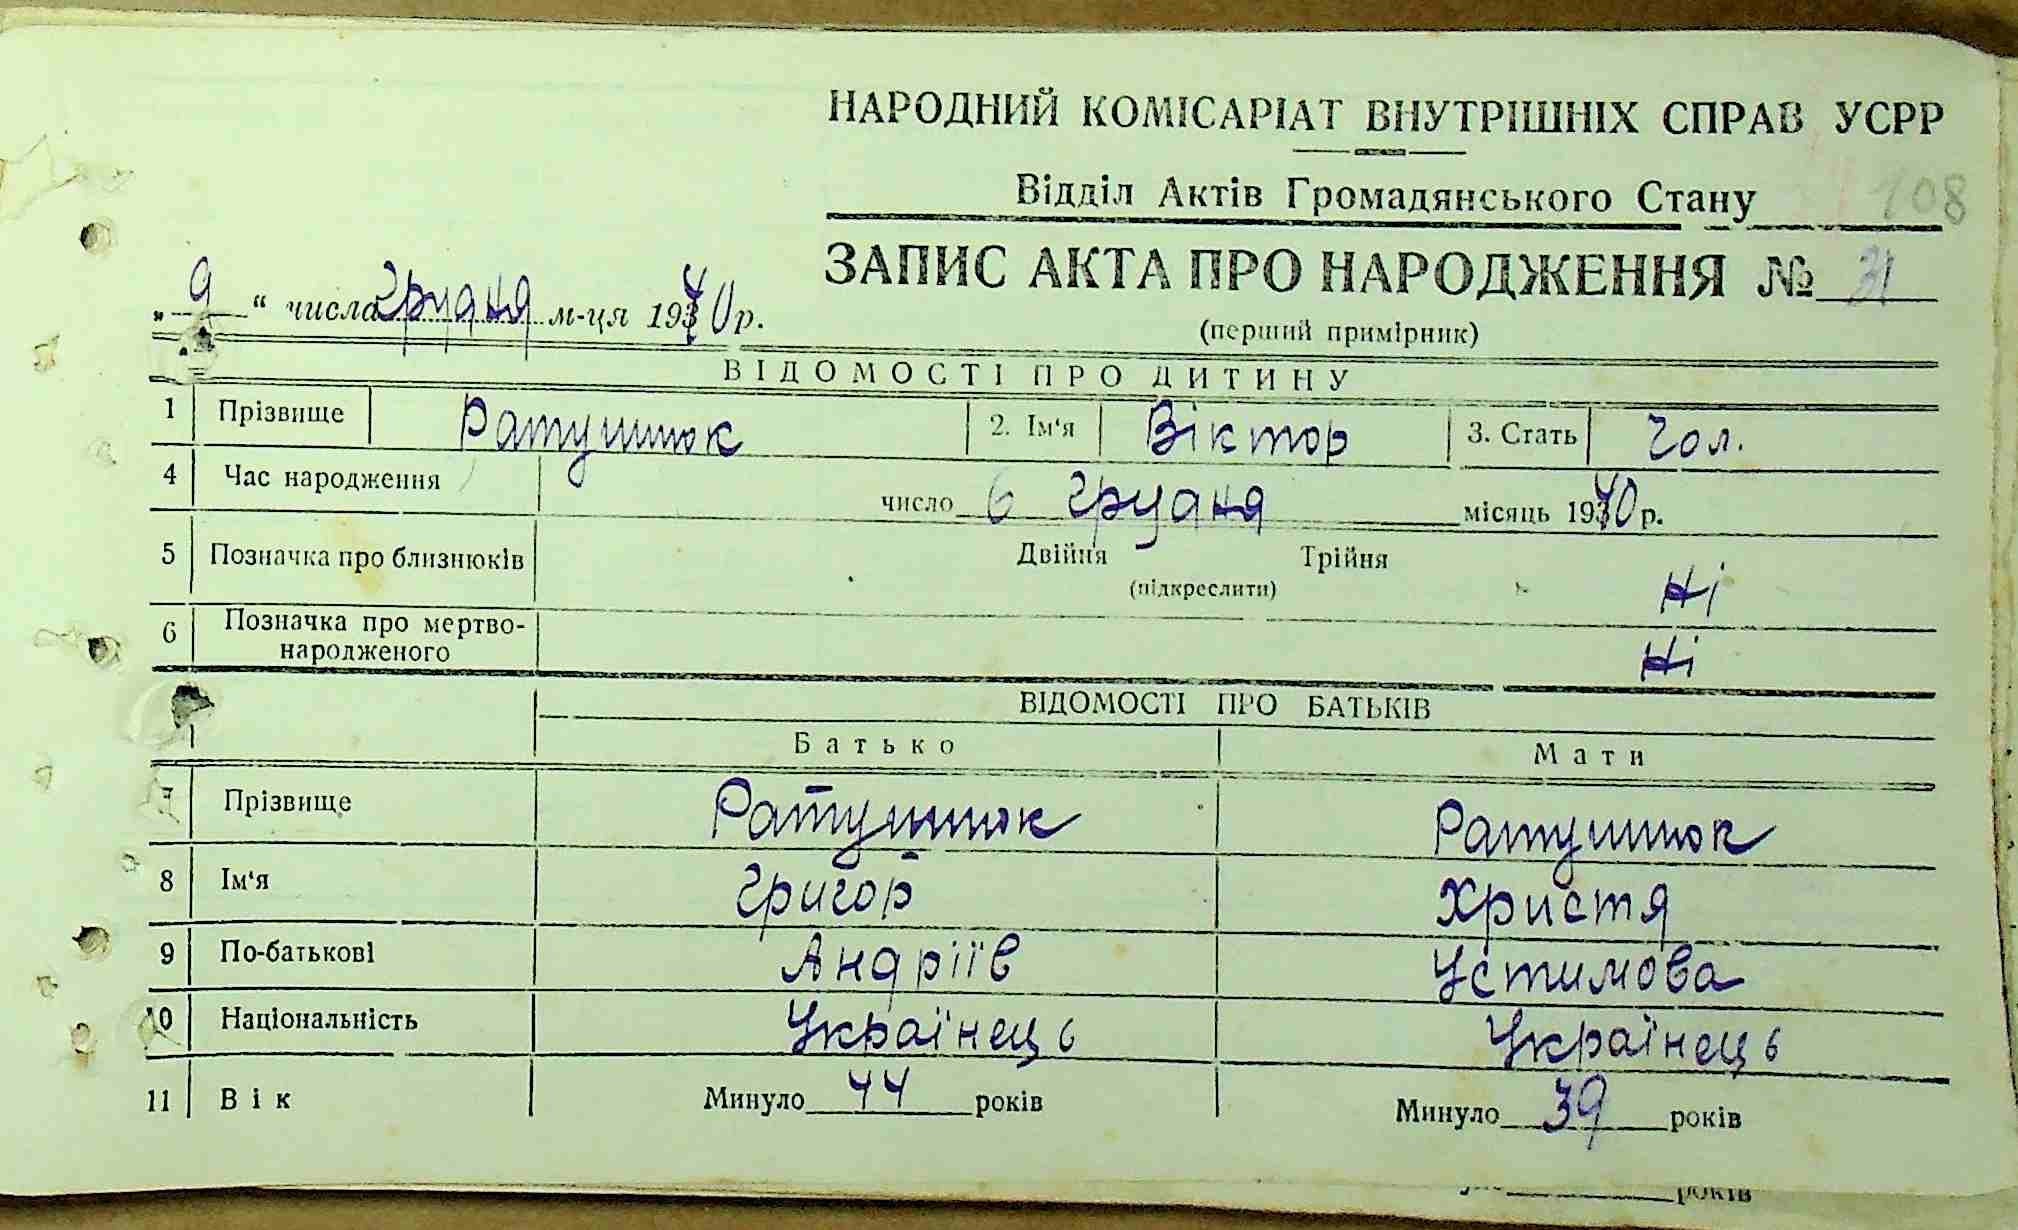 НАРОДНИЙ КОМІСАРІАТ ВНУТРІШНІХ СПРАВ УСРР
Відділ Актів Громадянського Стану 108
ЗАПИС АКТА ПРО НАРОДЖЕННЯ № 31
„ 9 “ числа грудня м-ця 1940 р.
(перший примірник)
ВІДОМОСТІ ПРО ДИТИНУ
1 Прізвище Ратушнюк 2. Ім‘я Віктор 3. Стать Чол.
4 Час народження число 6 грудня місяць 1940 р.
5 Позначка про близнюків Двійня Трійня Ні
(підкреслити)
6 Позначка про мертво-
народженого Ні
ВІДОМОСТІ ПРО БАТЬКІВ
Батько Мати
7 Прізвище Ратушнюк Ратушнюк
8 Ім‘я Григор Христя
9 По-батькові Андріїв Устимова
10 Національність Українець Українець
11 Вік Минуло 44 років Минуло 39 років
років